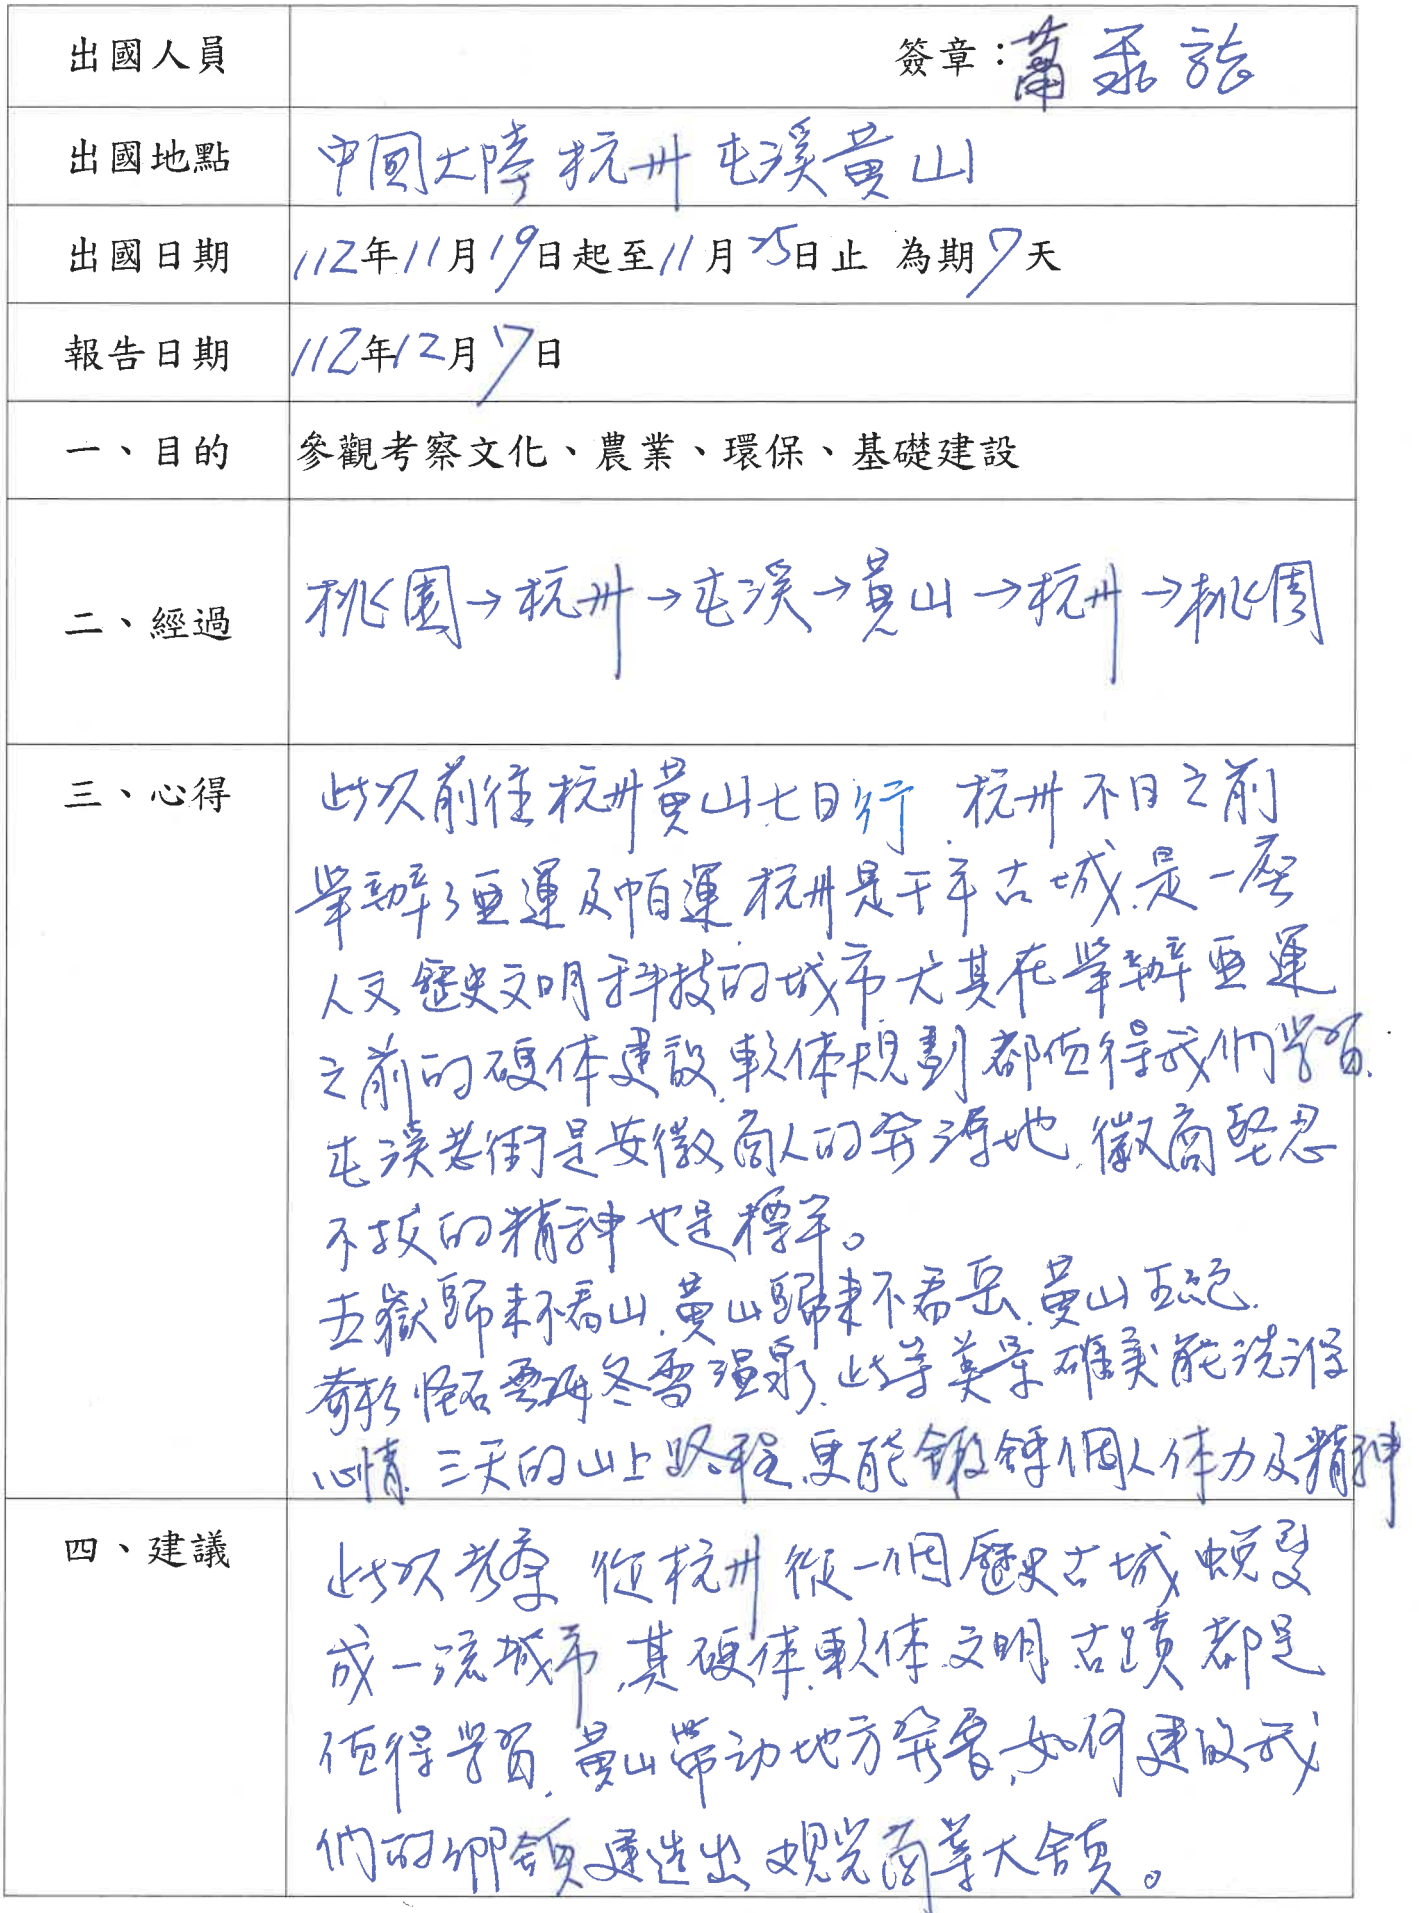 出國人員 簽章：蕭
出國地點 中國大陸杭州屯溪黃山
出國日期 112年11月19日起至11月25日止 為期7天
報告日期 112年12月7日
一、目的 參觀考察文化、農業、環保、基礎建設
二、經過 桃園→杭州→屯溪→黃山→杭州→桃園
三、心得 此次前往杭州黃山七日行.杭州不日之前
舉辦了亞運及帕運.杭州是千年古城.是一座
人文歷史文明科技的城市尤其在舉辦亞運
之前的硬体建設.軟体規劃都值得我們學習.
屯溪老街是安徽商人的發源地.徽商堅忍
不拔的精神也是標竿。
五嶽歸來不看山.黃山歸來不看岳.黃山五絕.
奇松怪石雲海冬雪溫泉.此等美景確實能洗滌
心情.三天的山上路程.更能鍛鍊個人体力及精神
四、建議 此次考察 從杭州從一個歷史古城蛻變
成一流城市.其硬体.軟体.文明.古蹟都是
值得學習.黃山帶動地方發展.如何建設我
們的鄉鎮建造出觀光商業大鎮。